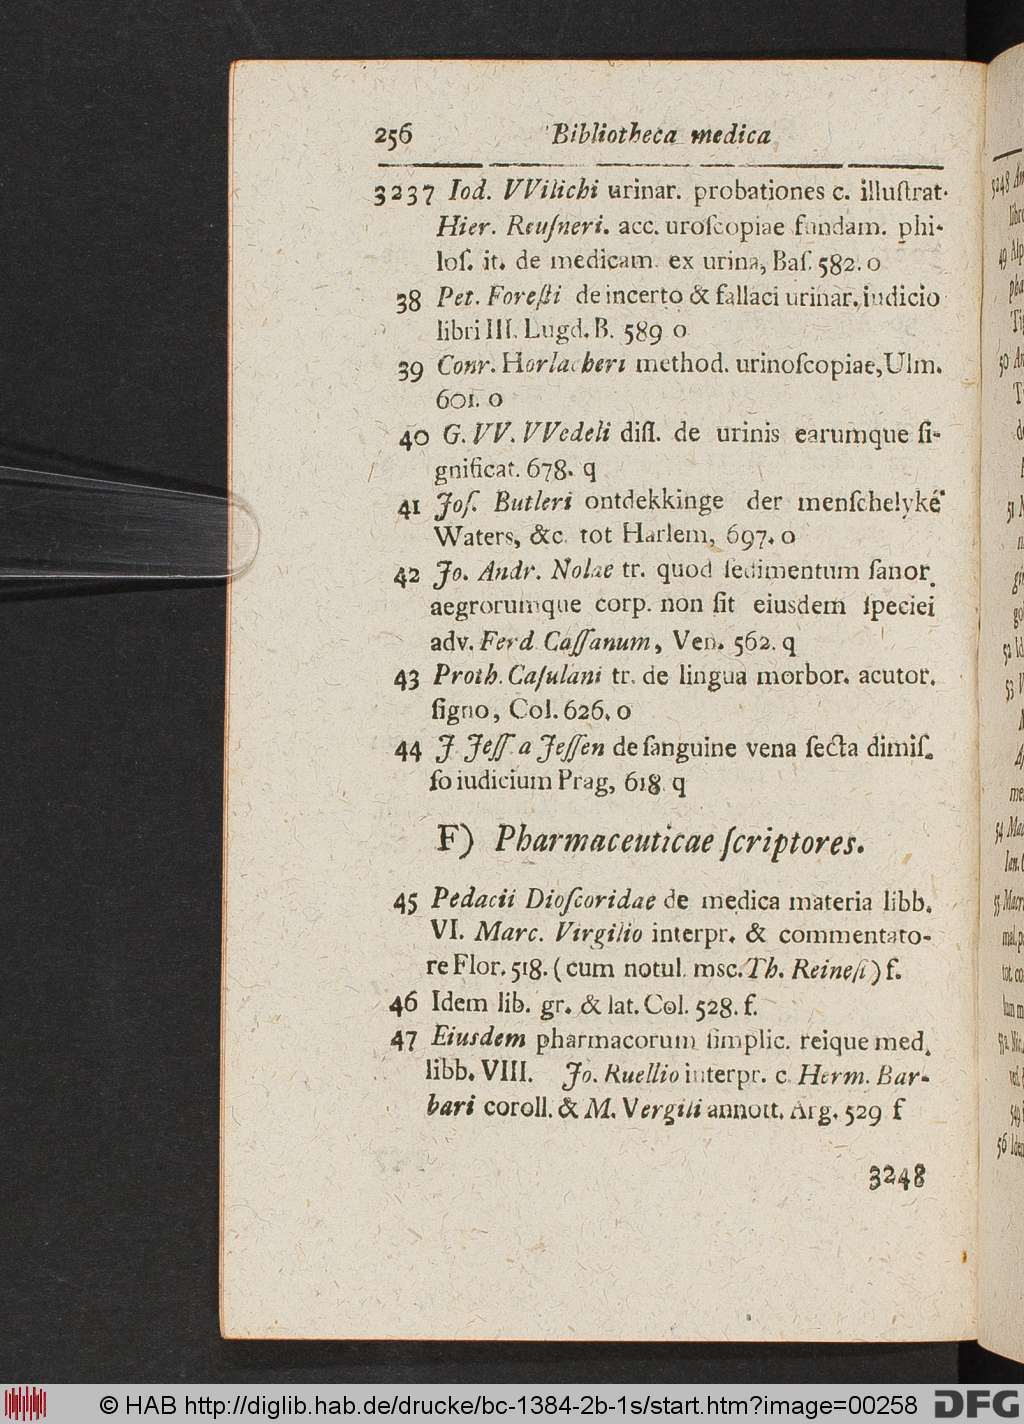 256 Bibliotheca medica
3237 Iod. VVilichi urinar. probationes c. illuſtrat.
Hier. Reuſneri. acc. uroſcopiae fundam. phi-
loſ. it. de medicam. ex urina, Baſ. 582. o
38 Pet. Foreſti de incerto & fallaci urinar. iudicio
libri III. Lugd. B. 589 o
39 Conr. Horlacheri method. urinoſcopiae, Ulm.
601. o
40 G. VV. VVedeli diſſ. de urinis earumque ſi-
gnificat. 678. q
41 Joſ. Butleri ontdekkinge der menſchelyké
Waters, &c. tot Harlem, 697. o
42 Jo. Andr. Nolae tr. quod ſedimentum ſanor.
aegrorumque corp. non ſit eiusdem ſpeciei
adv. Ferd Caſſanum, Ven. 562. q
43 Proth. Caſulani tr. de lingua morbor. acutor.
ſigno, Col. 626. o
44 J Jeſſ. a Jeſſen de ſanguine vena ſecta dimiſ-
ſo iudicium Prag, 618. q
F) Pharmaceuticae ſcriptores.
45 Pedacii Dioſcoridae de medica materia libb.
VI. Marc. Virgilio interpr. & commentato-
re Flor. 518. (cum notul. msc. Th. Reineſi) f.
46 Idem lib. gr. & lat. Col. 528. f.
47 Eiusdem pharmacorum ſimplic. reique med.
libb. VIII. Jo. Ruellio interpr. c. Herm. Bar-
bari coroll. & M. Vergili annott. Arg. 529 f
3248
© HAB http://diglib.hab.de/drucke/bc-1384-2b-1s/start.htm?image=00258
DFG